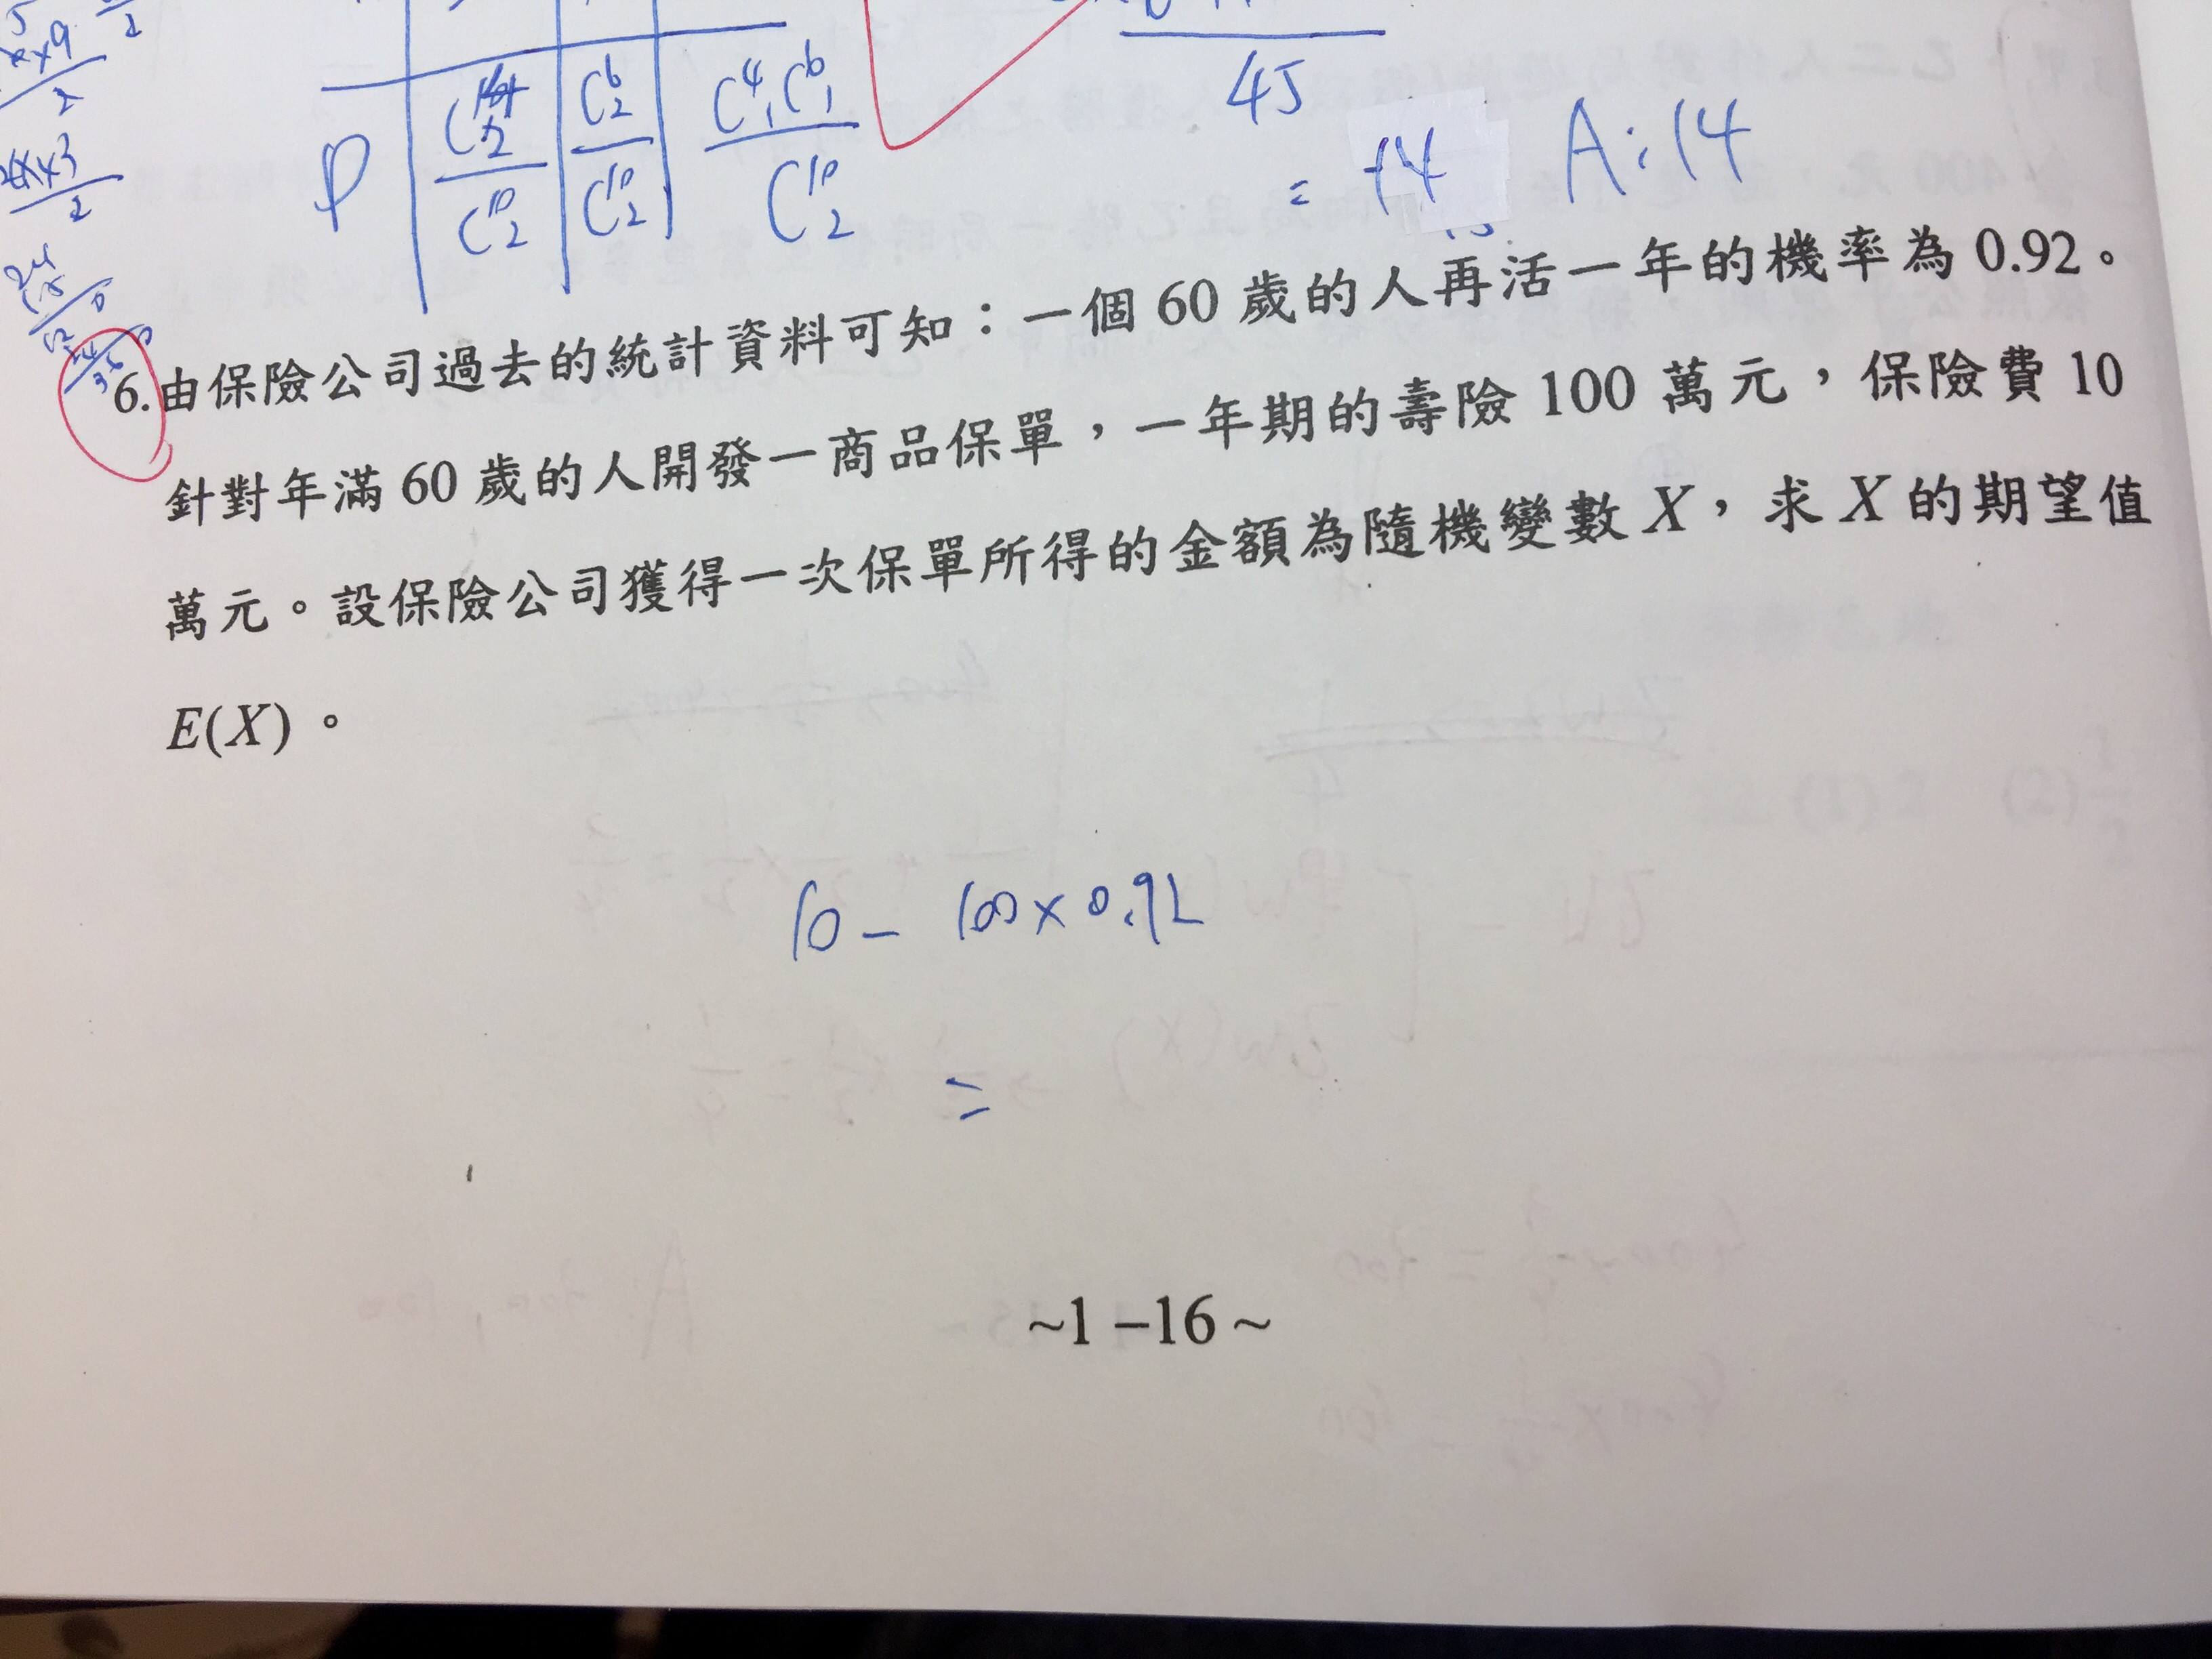 45
P
C^6_2 / C^10_2
C^4_1 C^6_1 / C^10_2
= 14 A:14
6.由保險公司過去的統計資料可知：一個 60 歲的人再活一年的機率為 0.92。
針對年滿 60 歲的人開發一商品保單，一年期的壽險 100 萬元，保險費 10
萬元。設保險公司獲得一次保單所得的金額為隨機變數 X，求 X 的期望值
E(X)。
10 - 100 × 0.92
=
~1 –16 ~